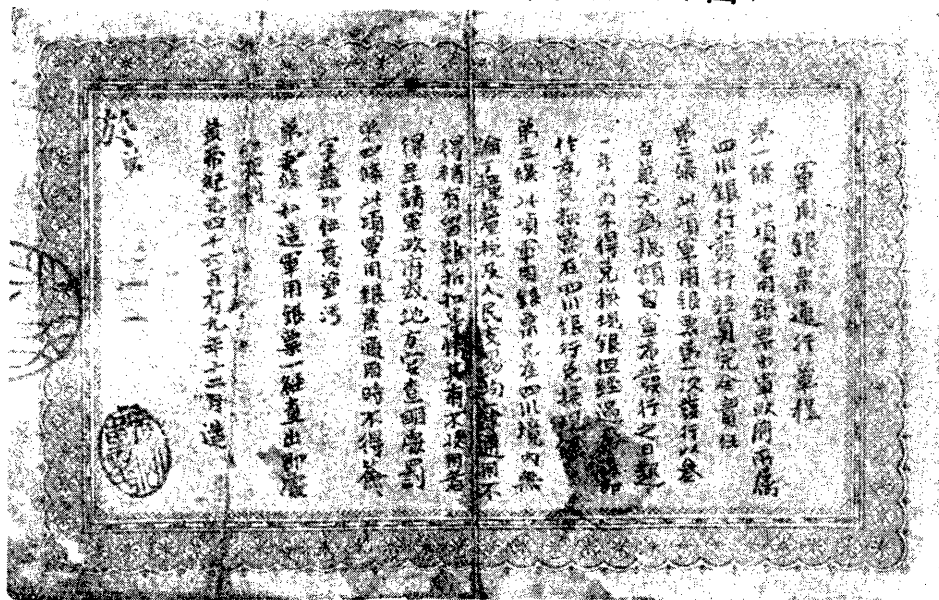 軍用銀票通行章程
第一條 此項軍用銀票由軍政府所屬
四川銀行發行擔負完全責任
第二條 此項軍用銀票第一次發行以叁
百萬元為總額自宣布發行之日起
一年以內不得兌換現銀但經過
作為兌換票在四川銀行兌換現
第三條 此項軍用銀票凡在四川境內無
論糧稅及人民交易均 通用不
得稍有留難折扣等情其有不使用者
得呈請軍政府或地方官查明處罰
第四條 此項軍用銀票通用時不得簽
字蓋印任意塗污
第五條 私造軍用銀票一經查出即處
黃帝紀元四千六百零九年十二月 造